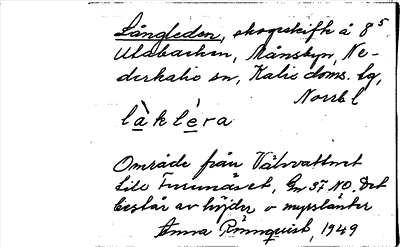 Långleden, skogsskifte å 8⁵
Ulabacken, Månsbyn, Ne-
derkalix sn, Kalix doms. lg,
Norrb l
làkléra
Område från Vähvattnet
till Furunäset, Gn 37 NO. Det
består av höjder o myrslänter
Anna Rönnquist, 1949